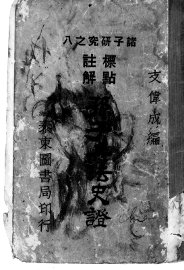 諸子研究之八
支偉成編
標點
註解
史證
泰東圖書局印行